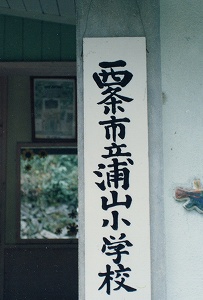 西条市立浦山小学校